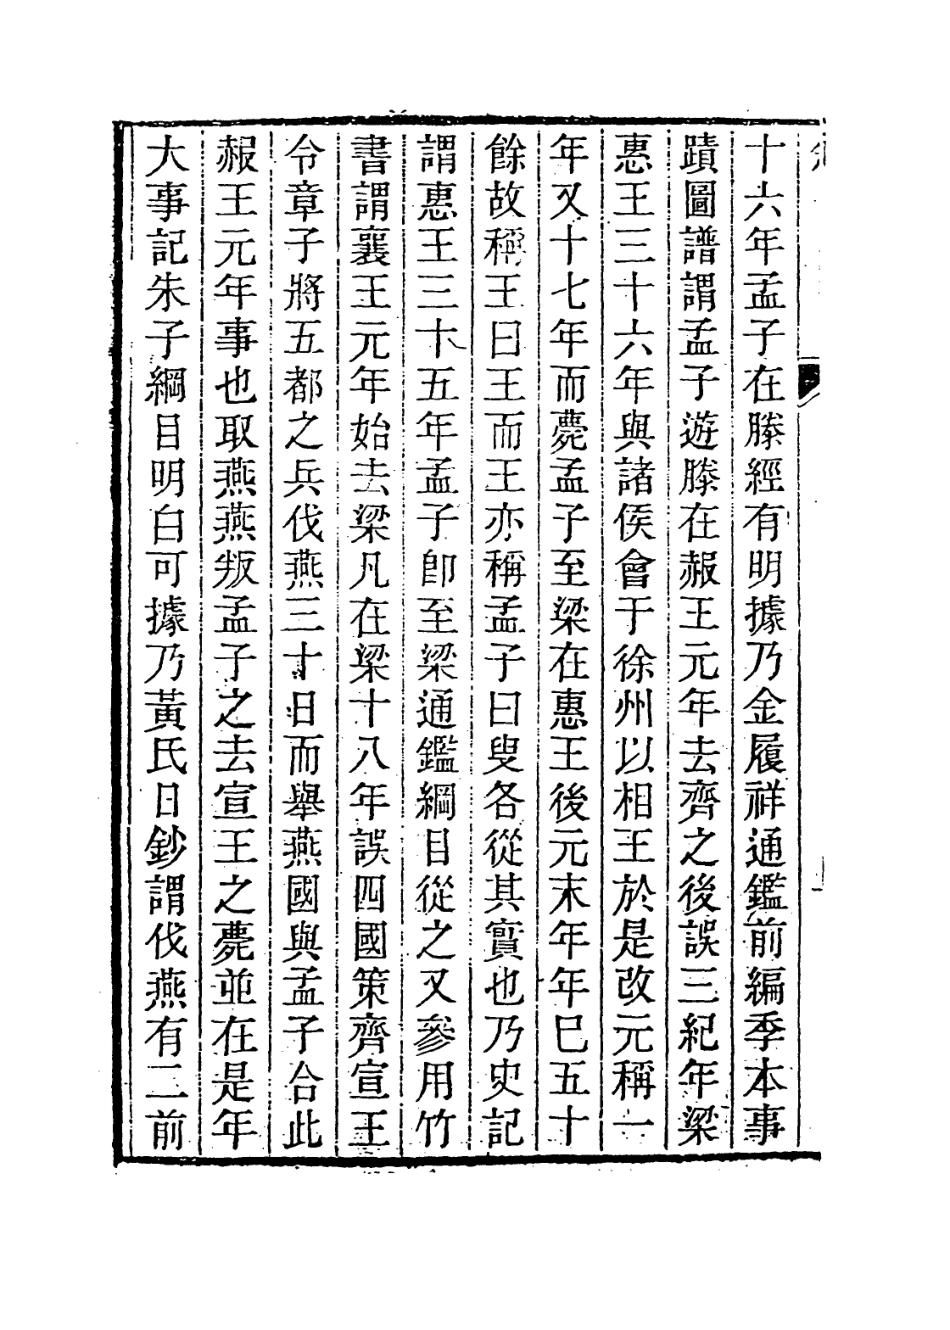 十六年孟子在滕經有明據乃金履祥通鑑前編季本事
蹟圖譜謂孟子遊滕在赧王元年去齊之後誤三紀年梁
惠王三十六年與諸侯會于徐州以相王於是改元稱一
年又十七年而薨孟子至梁在惠王後元末年年巳五十
餘故稱王曰王而王亦稱孟子曰叟各從其實也乃史記
謂惠王三十五年孟子卽至梁通鑑綱目從之又參用竹
書謂襄王元年始去梁凡在梁十八年誤四國策齊宣王
令章子將五都之兵伐燕三十日而舉燕國與孟子合此
赧王元年事也取燕燕叛孟子之去宣王之薨並在是年
大事記朱子綱目明白可據乃黃氏日鈔謂伐燕有二前